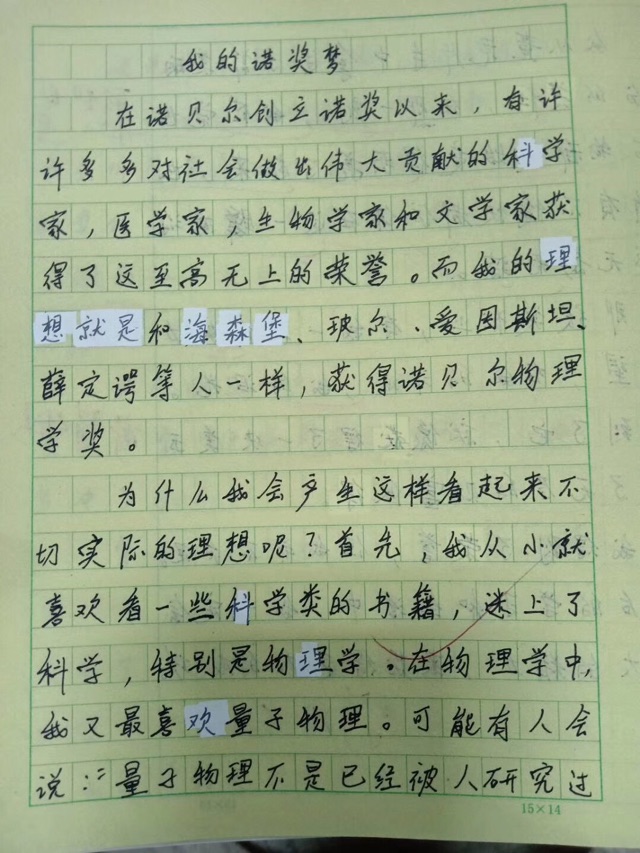 我的诺奖梦
在诺贝尔创立诺奖以来，有许
许多多对社会做出伟大贡献的科学
家，医学家，生物学家和文学家获
得了这至高无上的荣誉。而我的理
想就是和海森堡、玻尔、爱因斯坦、
薛定谔等人一样，获得诺贝尔物理
学奖。
为什么我会产生这样看起来不
切实际的理想呢？首先，我从小就
喜欢看一些科学类的书籍，迷上了
科学，特别是物理学。在物理学中，
我又最喜欢量子物理。可能有人会
说：“量子物理不是已经被人研究过
15×14